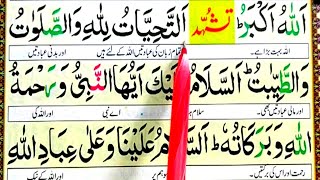 اَللّٰهُ اَكْبَرُ تشہد اَلتَّحِيَّاتُ لِلّٰهِ وَالصَّلَوٰتُ
اللہ بہت بڑا ہے۔ تمام زبان کی عبادتیں اللہ کے لئے ہیں اور بدنی عبادتیں
وَالطَّيِّبٰتُ اَلسَّلَامُ عَلَيْكَ اَيُّهَا النَّبِيُّ وَرَحْمَةُ
اور مالی عبادتیں بھی سلام ہو اے نبی اور اللہ کی
اللّٰهِ وَبَرَكَاتُهٗ اَلسَّلَامُ عَلَيْنَا وَعَلٰى عِبَادِ اللّٰهِ
رحمت اور اس کی برکتیں۔ ہم پر اور اللہ کے نیک